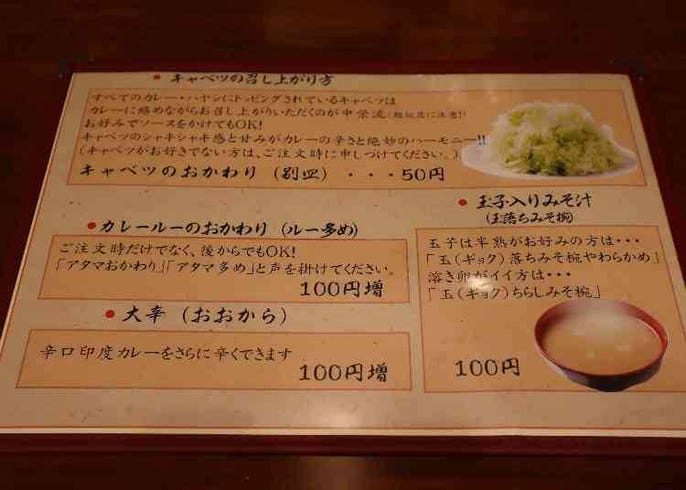 ● キャベツの召し上がり方
すべてのカレー・ハヤシにトッピングされているキャベツは
カレーに絡めながらお召し上がりいただくのが中栄流
お好みでソースをかけてもOK!
キャベツのシャキシャキ感と甘みがカレーの辛さと絶妙のハーモニー!!
(キャベツがお好きでない方は、ご注文時に申しつけてください。)
キャベツのおかわり (別皿) ・・・50円
● カレールーのおかわり (ルー多め)
ご注文時だけでなく、後からでもOK!
「アタマおかわり」「アタマ多め」と声を掛けてください。
100円増
● 大辛 (おおから)
辛口印度カレーをさらに辛くできます
100円増
● 玉子入りみそ汁
(玉落ちみそ椀)
玉子は半熟がお好みの方は・・・
「玉(ギョク)落ちみそ椀やわらかめ」
溶き卵がイイ方は・・・
「玉(ギョク)ちらしみそ椀」
100円